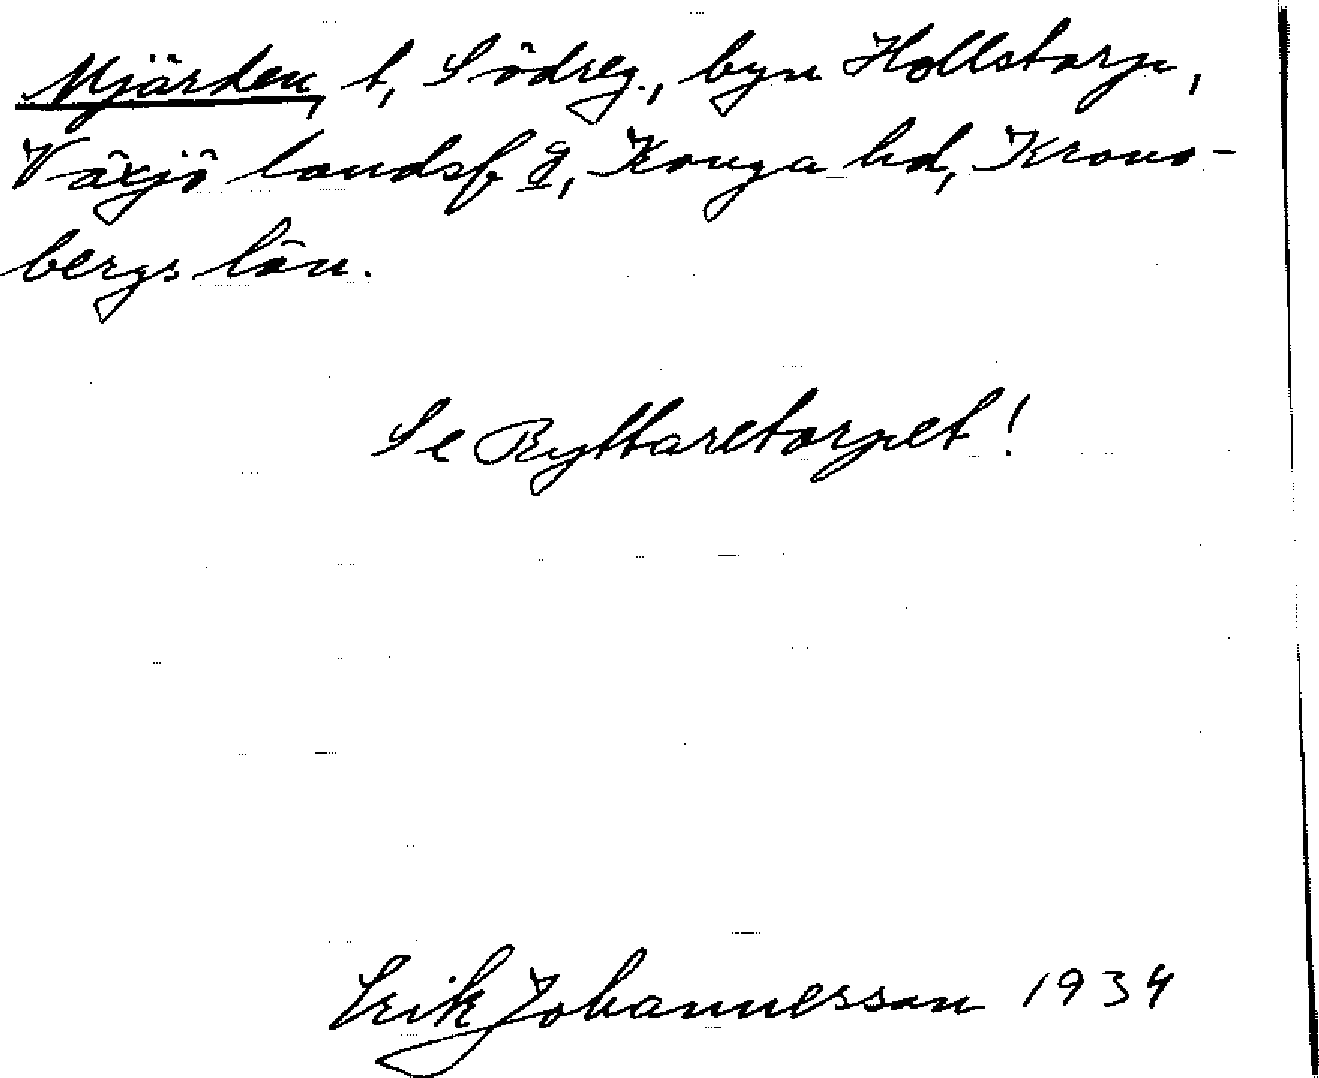 Mjärden, t, Södreg., byn Hollstorp,
Växjö landsf g, Konga hd, Krono-
bergs län.
Se Ryttaretorpet!
Erik Johannesson 1934